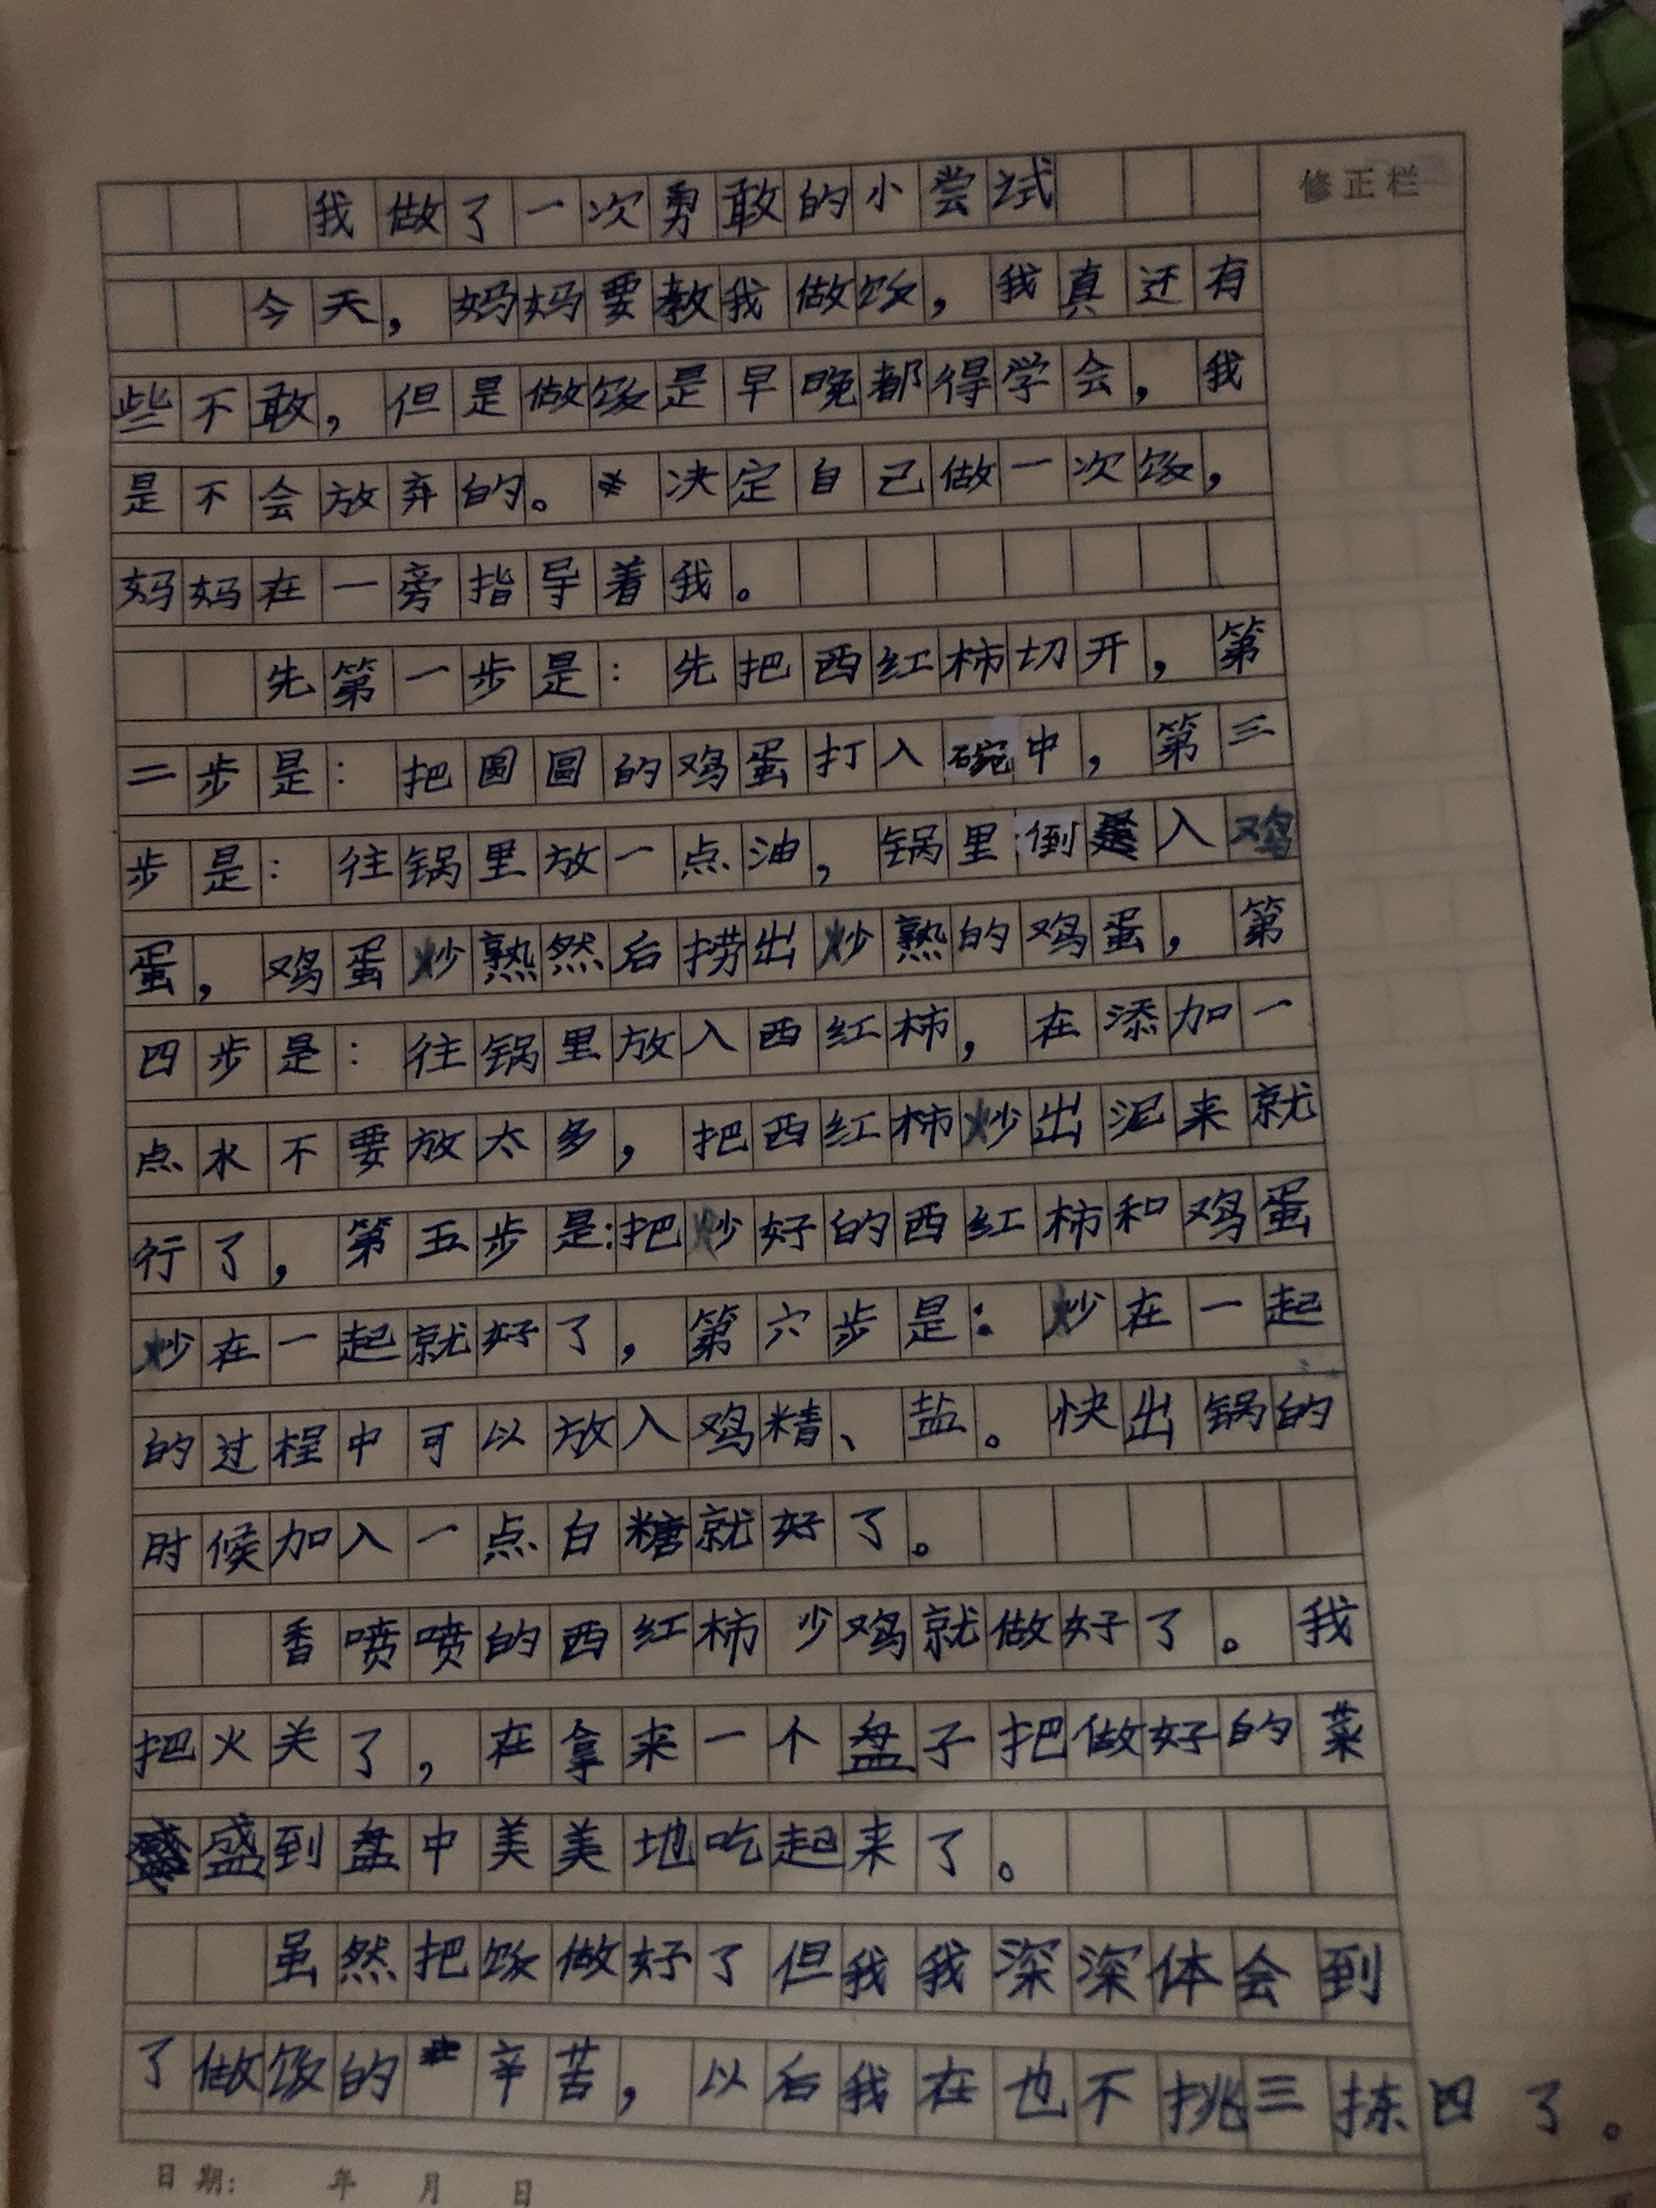 修正栏
我做了一次勇敢的小尝试
今天，妈妈要教我做饭，我真还有
些不敢，但是做饭是早晚都得学会，我
是不会放弃的。决定自己做一次饭，
妈妈在一旁指导着我。
先第一步是：先把西红柿切开，第
二步是：把圆圆的鸡蛋打入碗中，第三
步是：往锅里放一点油，锅里倒入鸡
蛋，鸡蛋炒熟然后捞出炒熟的鸡蛋，第
四步是：往锅里放入西红柿，在添加一
点水不要放太多，把西红柿炒出泥来就
行了，第五步是：把炒好的西红柿和鸡蛋
炒在一起就好了，第六步是：炒在一起
的过程中可以放入鸡精、盐。快出锅的
时候加入一点白糖就好了。
香喷喷的西红柿少鸡就做好了。我
把火关了，在拿来一个盘子把做好的菜
盛到盘中美美地吃起来了。
虽然把饭做好了但我我深深体会到
了做饭的辛苦，以后我在也不挑三拣四了。
日期： 年 月 日